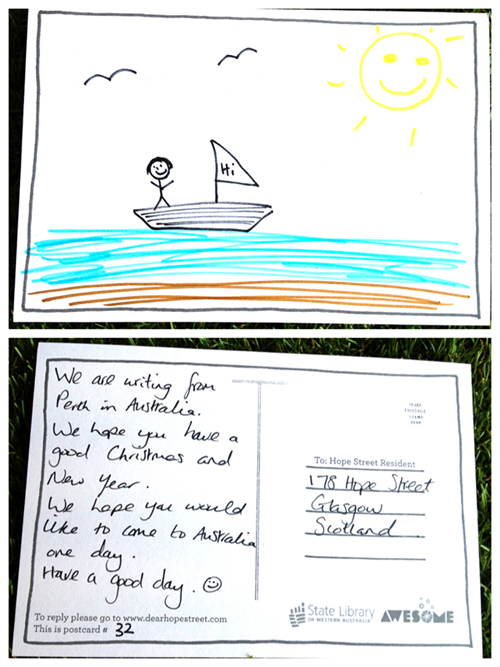 Hi
We are writing from
Perth in Australia.
We hope you have a
good Christmas and
New Year.
We hope you would
like to come to Australia
one day.
Have a good day.
To reply please go to www.dearhopestreet.com
This is postcard # 32
PLACE
POSTAGE
STAMP
HERE
To: Hope Street Resident
178 Hope Street
Glasgow
Scotland
State Library
OF WESTERN AUSTRALIA
AWESOME